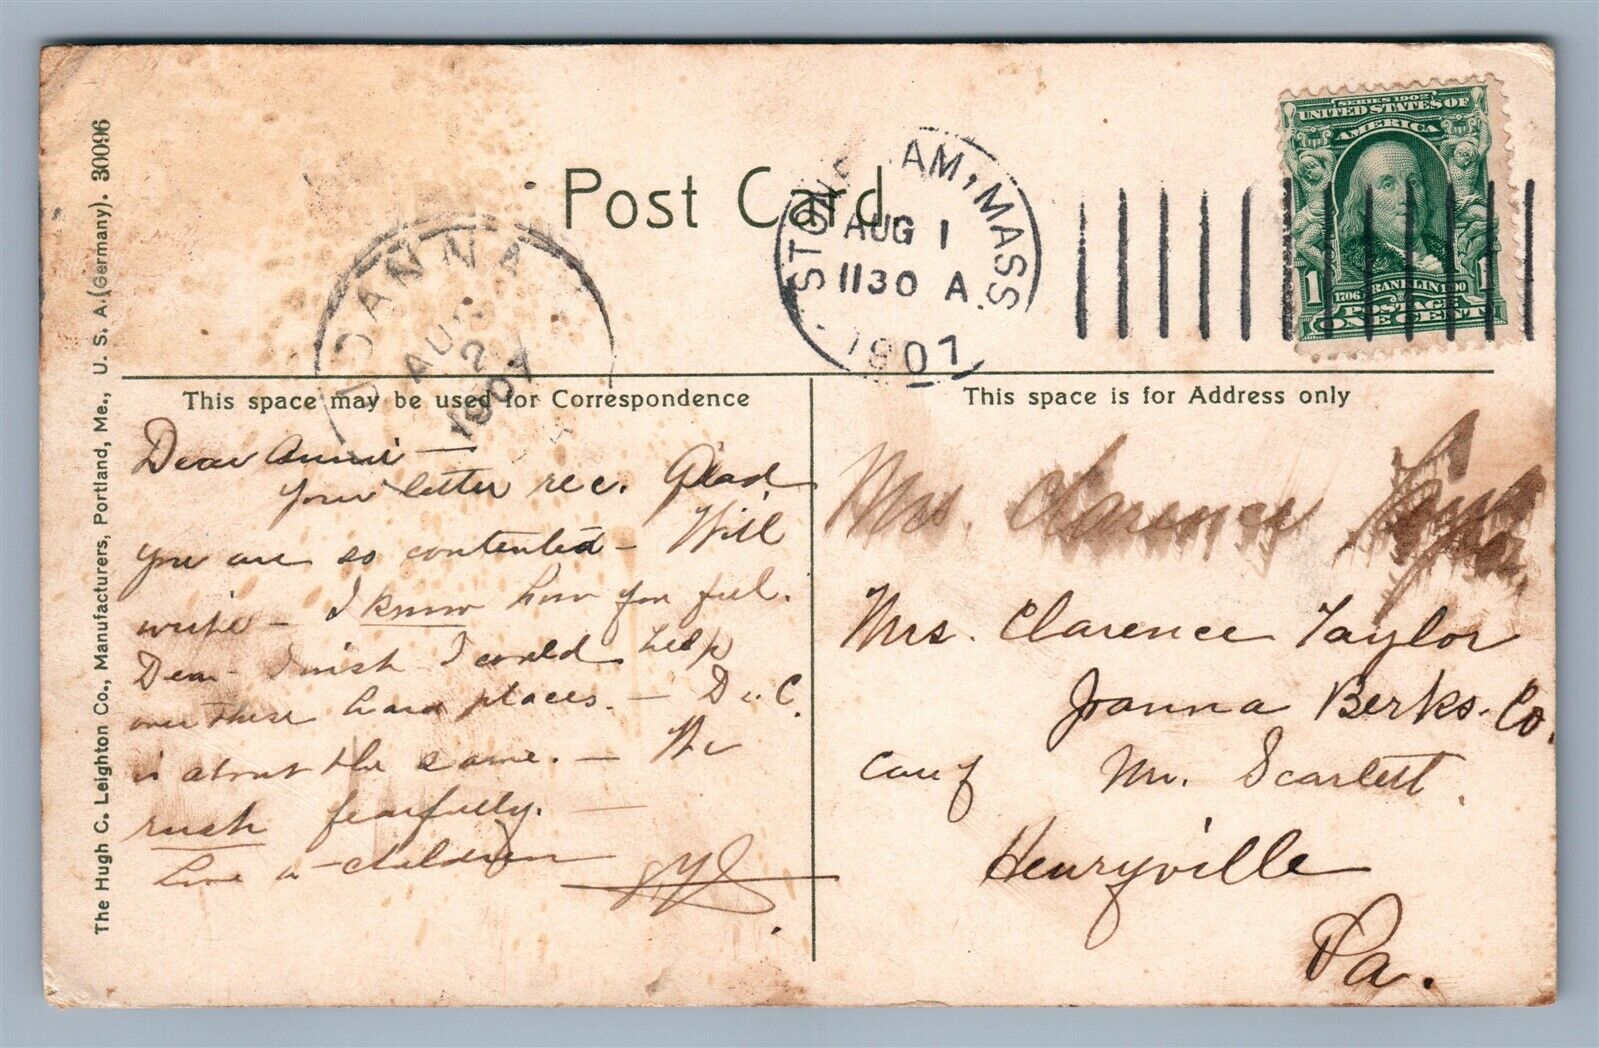 The Hugh C. Leighton Co., Manufacturers, Portland, Me., U. S. A. (Germany). 30096
Post Card
JOANNA
AUG
2
1907
STON AM, MASS
AUG 1
1130 A
1907
SERIES 1902
UNITED STATES OF
AMERICA
1 1
1706 FRANKLIN 1790
POSTAGE
ONE CENT
This space may be used for Correspondence
Dear Annie —
your letter rec. Glad
you are so contented — Will
write — I know how you feel.
Dear I wish I could help
over these hard places. — D C.
is about the same. — We
rush fearfully. —
Love to children
This space is for Address only
Mrs. Clarence Taylor
Mrs. Clarence Taylor
Joanna Berks. Co.
Mr. Scarlett.
Henryville
Pa.